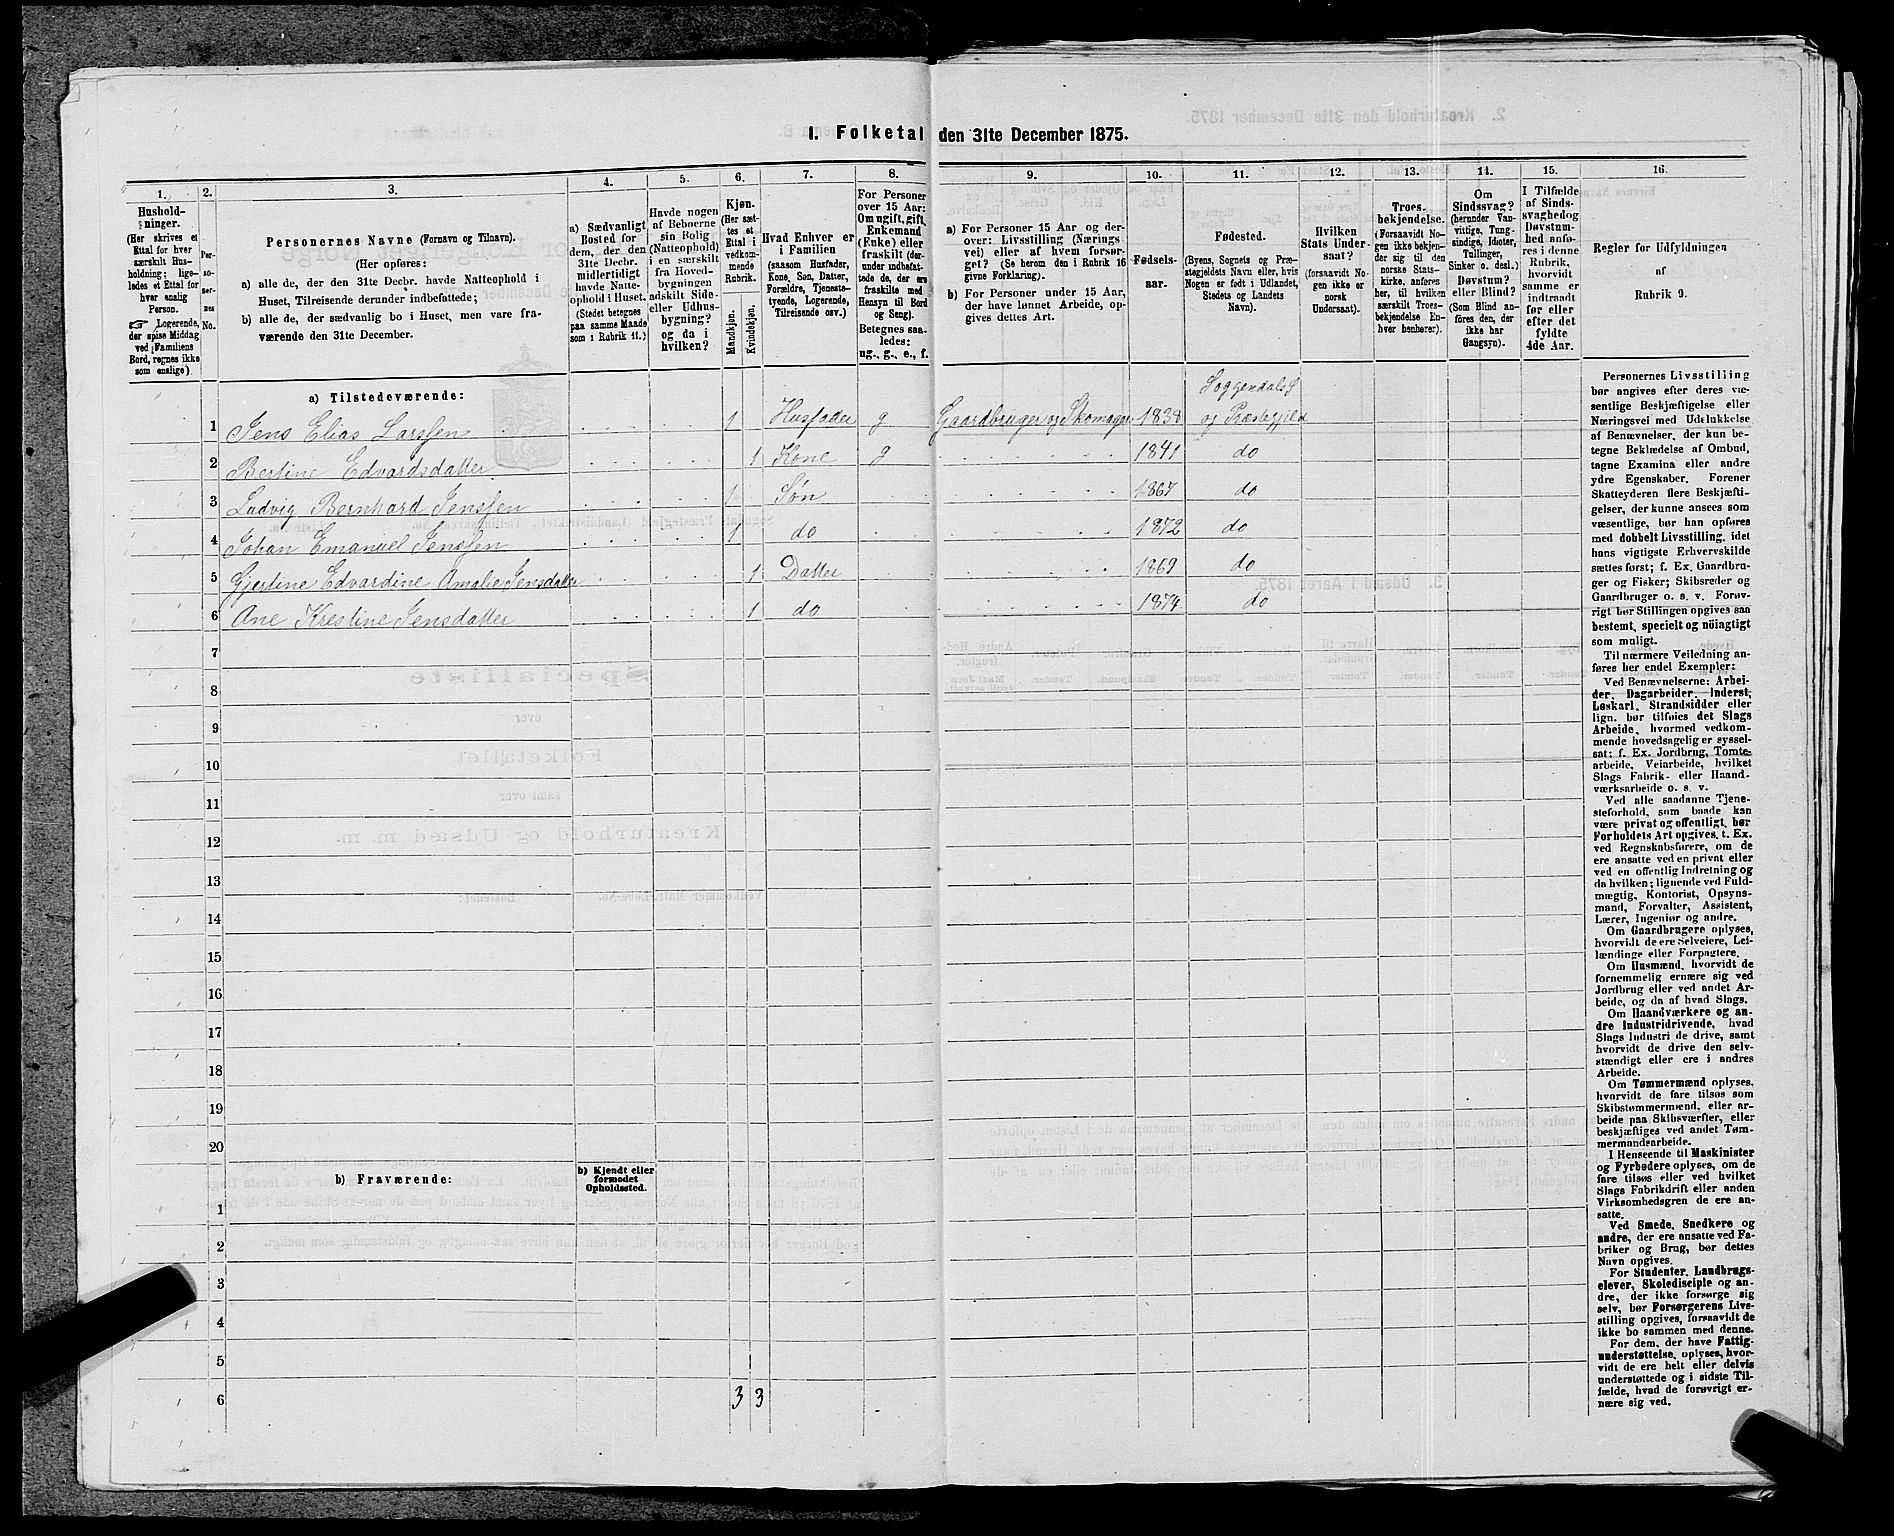 1. Folketal den 31te December 1875.
1. 2. 3. 4. 5. 6. 7. 8. 9. 10. 11. 12. 13. 14. 15. 16.
Hushold-
ninger.
(Her skrives et
Ettal for hver
særskilt Hus-
holdning; lige-
ledes et Ettal for
hver enslig
Person.
☞ Logerende,
der spise Middag
ved Familiens
Bord, regnes ikke
som enslige).
Per-
so-
ner-
nes
No.
Personernes Navne (Fornavn og Tilnavn).
(Her opføres:
a) alle de, der den 31te Decbr. havde Natteophold i
Huset, Tilreisende derunder indbefattede;
b) alle de, der sædvanlig bo i Huset, men vare fra-
værende den 31te December.
a) Sædvanligt
Bosted for
dem, der den
31te Decbr.
midlertidigt
havde Natte-
ophold i Huset.
(Stedet betegnes
paa samme Maade
som i Rubrik 11.)
Havde nogen
af Beboerne
sin Bolig
(Natteophold)
i en særskilt
fra Hoved-
bygningen
adskilt Side-
eller Udhus-
bygning?
og da i
hvilken?
Kjøn.
(Her sæt-
tes et
Ettal i
vedkom-
mende
Rubrik.
Mandkjøn.
Kvindekjøn.
Hvad Enhver er
i Familien
(saasom Husfader,
Kone, Søn, Datter,
Forældre, Tjeneste-
tyende, Logerende,
Tilreisende osv.)
For Personer
over 15 Aar:
Om ugift, gift,
Enkemand
(Enke) eller
fraskilt (der-
under indbefat-
tede de, der ere
fraskilte med
Hensyn til Bord
og Seng).
Betegnes saa-
ledes:
ug., g., e., f.
a) For Personer 15 Aar og der-
over: Livsstilling (Nærings-
vei) eller af hvem forsør-
get? (Se herom den i Rubrik 16
givne Forklaring).
b) For Personer under 15 Aar,
der have lønnet Arbeide, op-
gives dettes Art.
Fødsels-
aar.
Fødested.
(Byens, Sognets og Præ-
stegjeldets Navn eller, hvis
Nogen er født i Udlandet,
Stedets og Landets
Navn).
I Hvilken
Stats Under-
saat?
(forsaavidt No-
gen ikke er
norsk
Undersaat).
Troes-
bekjendelse.
(Forsaavidt No-
gen ikke bekjen-
der sig til den
norske Stats-
kirke, anføres
her, til hvilken
særskilt Troes-
bekjendelse En-
hver henhører).
Om
Sindssvag?
(herunder Van-
vittige, Tung-
sindige, Idioter,
Tullinger,
Sinker o. desl.)
Døvstum?
eller Blind?
(Som Blind an-
føres den, der
ikke har
Gangsyn).
I Tilfælde
af Sinds-
svaghed og
Døvstum-
hed anfø-
res i denne
Rubrik,
hvorvidt
samme er
indtraadt
før eller
efter det
fyldte
4de Aar.
Regler for Udfyldningen
af
Rubrik 9.
a) Tilstedeværende:
1 Jens Elias Larssen 1 Husfader g Gaardbruger og Skomager 1838 Soggendals S
og Præstegjeld
2 Bertine Edvardsdatter 1 Kone g 1841 do
3 Ludvig Bernhard Jenssen 1 Søn 1867 do
4 Johan Emanuel Jenssen 1 do 1872 do
5 Gjertine Edvardine Amalie Jensdatter 1 Datter 1869 do
6 Ane Krestine Jensdatter 1 do 1874 do
7
8
9
10
11
12
13
14
15
16
17
18
19
20
b) Fraværende: b) Kjendt eller
formodet
Opholdssted.
1
2
3
4
5
6 3 3
Personernes Livsstilling
bør angives efter deres væ-
sentlige Beskjæftigelse eller
Næringsvei med Udelukkelse
af Benævnelser, der kun be-
tegne Beklædelse af Ombud,
tagne Examina eller andre
ydre Egenskaber. Forener
Skatteyderen flere Beskjæfti-
gelser, der kunne ansees som
væsentlige, bør han opføres
med dobbelt Livsstilling, idet
hans vigtigste Erhvervskilde
sættes først; f. Ex. Gaardbru-
ger og Fisker; Skibsreder og
Gaardbruger o. s. v. Forøv-
rigt bør Stillingen opgives saa
bestemt, specielt og nöiagtigt
som muligt.
Til nærmere Veiledning an-
føres her endel Exempler:
Ved Benævnelserne: Arbei-
der, Dagarbeider, Inderst,
Løskarl, Strandsidder eller
lign. bør tilføies det Slags
Arbeide, hvormed vedkom-
mende hovedsagelig er syssel-
sat; f. Ex. Jordbrug, Tomte-
arbeide, Veiarbeide, hvilket
Slags Fabrik- eller Haand-
værksarbeide o. s. v.
Ved alle saadanne Tjene-
steforhold, som baade kan
være privat og offentligt, bør
Forholdets Art opgives, t. Ex.
ved Regnskabsførere, om de
ere ansatte ved en privat eller
ved en offentlig Indretning og
da hvilken; lignende ved Fuld-
mægtig, Kontorist, Opsyns-
mand, Forvalter, Assistent,
Lærer, Ingeniør og andre.
Om Gaardbrugere oplyses,
hvorvidt de ere Selveiere, Lei-
lændinge eller Forpagtere.
Om Husmænd, hvorvidt de
fornemmelig ernære sig ved
Jordbrug eller ved andet Ar-
beide, og da af hvad Slags.
Om Haandværkere og an-
dre Industridrivende, hvad
Slags Industri de drive, samt
hvorvidt de drive den selv-
stændigt eller ere i andres
Arbeide.
Om Tømmermænd oplyses,
hvorvidt de fare tilsøs som
Skibstømmermænd, eller ar-
beide paa Skibsværfter, eller
beskjæftiges ved andet Tøm-
mermandsarbeide.
I Henseende til Maskinister
og Fyrbødere oplyses, om de
fare tilsøs eller ved hvilket
Slags Fabrikdrift eller anden
Virksomhedsgren de ere an-
satte.
Ved Smede, Snedkere og
andre, der ere ansatte ved Fa-
briker og Brug, bør dettes
Navn opgives.
For Studenter, Landbrugs-
elever, Skoledisciple og an-
dre, der ikke forsørge sig
selv, bør Forsørgerens Livs-
stilling opgives, forsaavidt de
ikke bo sammen med denne.
For dem, der have Fattig-
understøttelse, oplyses, hvor-
vidt de ere helt eller delvis
understøttede og i sidste Til-
fælde, hvad de forøvrigt er-
nære sig ved.